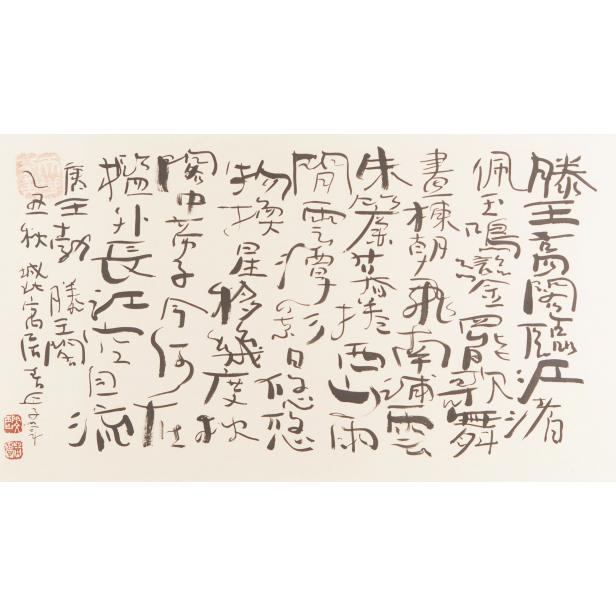 滕王高閣臨江渚
佩玉鳴鑾罷歌舞
畫棟朝飛南浦雲
朱簾暮捲西山雨
閒雲潭影日悠悠
物換星移幾度秋
閣中帝子今何在
檻外長江空自流
唐王勃滕王閣
乙丑秋